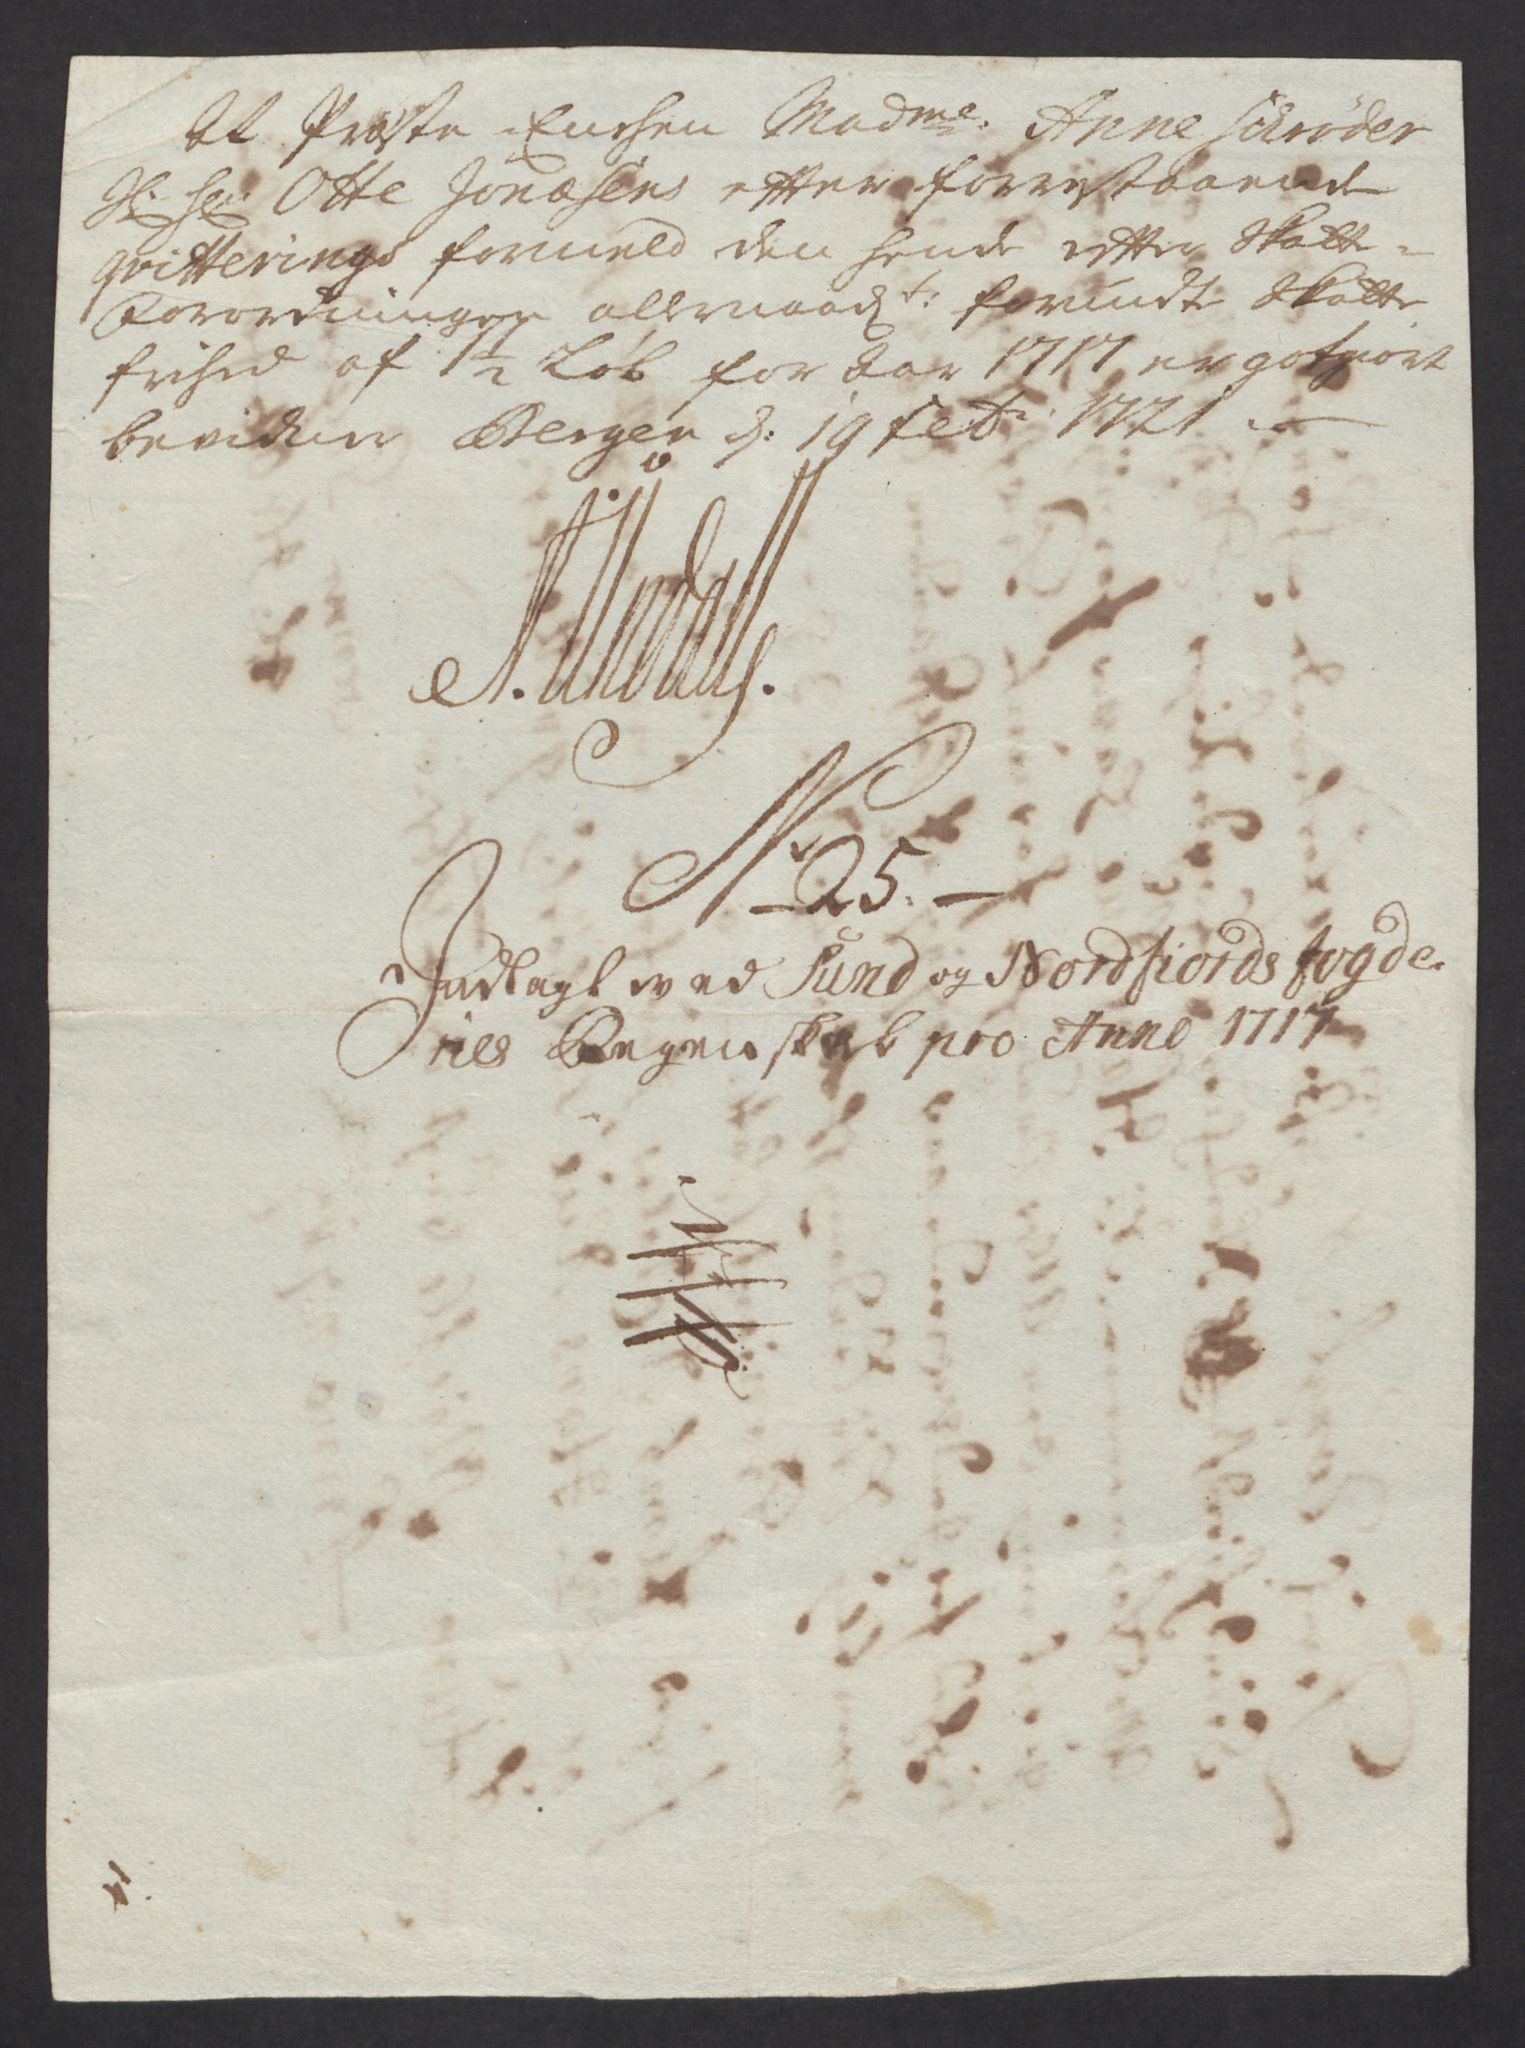 At Præste Enchen Madme. Anne Schrøder
Sl: Hr: Otte Jonæsens effter forrestaaende
qvitterings formeld den hende effter Skatte-
Forordningen allernaadst: forundte Skatte
frihed af 1½ Løb for Aar 1717 er godtgiort
bevidner Bergen d: 19 1721
N 25.
Indlagt wed Sund og Nordfiords fogde-
ries Regenskab pro Anno 1717